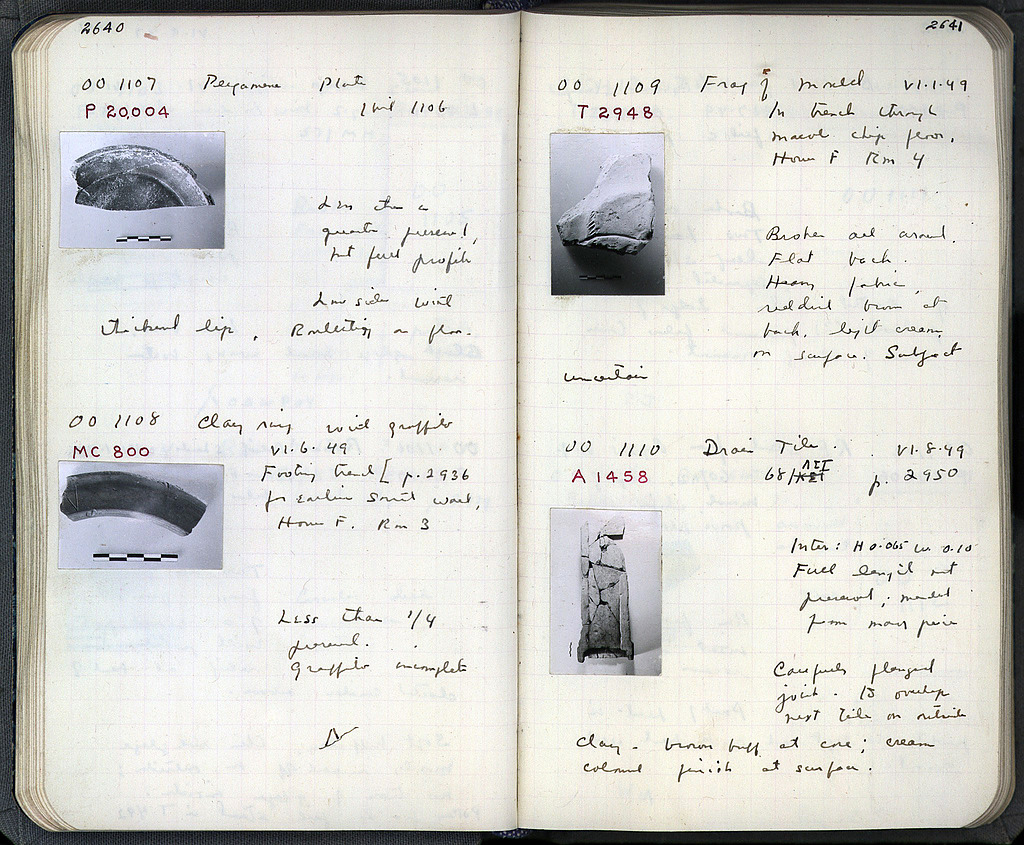 2640
OO 1107 Pergamene Plate
P 20,004
with 1106
Less than a
quarter preserved,
but full profile
Low side with
thickened lip. Rouletting on floor.
OO 1108 Clay ring with graffito
MC 800 VI.6.49
Footing trench [p. 2936
for earlier South wall,
House F. Rm 3
Less than 1/4
preserved.
Graffito incomplete
2641
OO 1109 Frag of mould VI.1.49
T 2948
In trench through
marble chip floor.
House F Rm 4
Broken all around.
Flat back.
Heavy fabric,
reddish brown at
back, light cream
on surface. Subject
uncertain
OO 1110 Drain Tile. VI.8.49
A 1458 68/ΛΣΤ p. 2950
Inter: H 0.065 W. 0.10
Full length not
preserved; mended
from many pieces
Carefully flanged
joint to overlap
next tile on outside
Clay - brown buff at core; cream
coloured finish at surface.